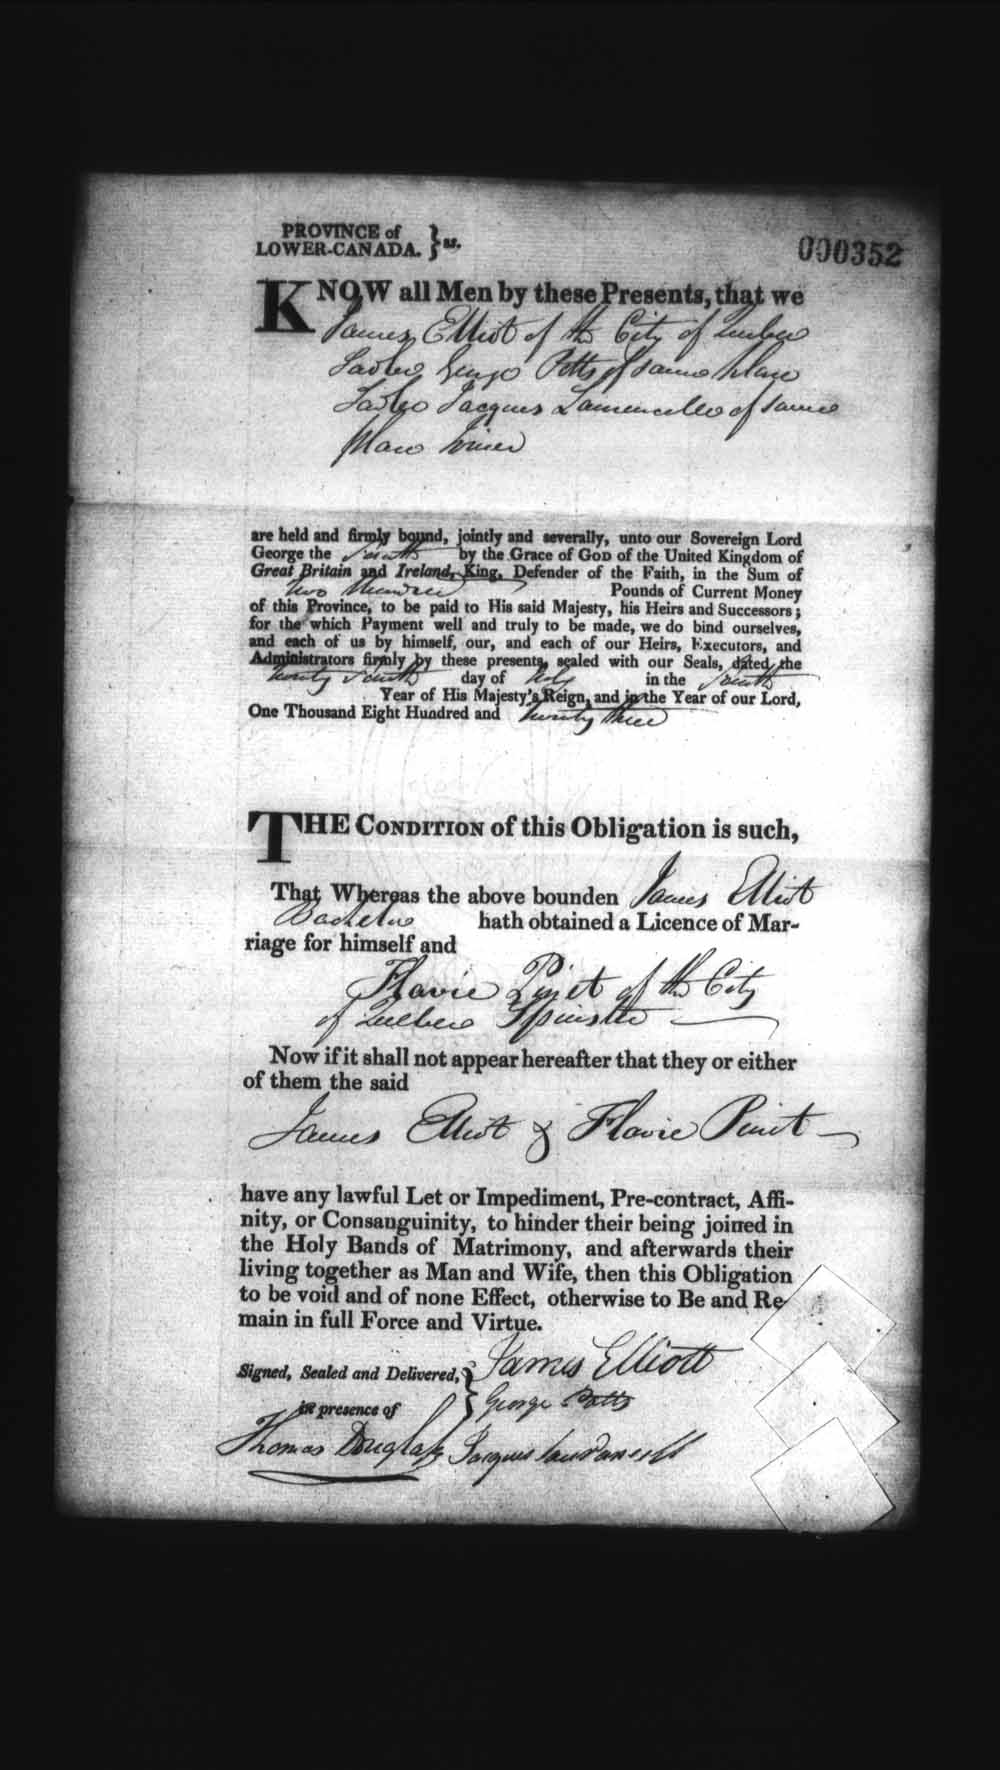 PROVINCE of
LOWER-CANADA. } ss.
000352
KNOW all Men by these Presents, that we
James Elliot of the City of Quebec
George Potts of same place
Jacques of same
place Joiner
are held and firmly bound, jointly and severally, unto our Sovereign Lord
George the Fourth by the Grace of GOD of the United Kingdom of
Great Britain and Ireland, King, Defender of the Faith, in the Sum of
two hundred Pounds of Current Money
of this Province, to be paid to His said Majesty, his Heirs and Successors;
for the which Payment well and truly to be made, we do bind ourselves,
and each of us by himself, our, and each of our Heirs, Executors, and
Administrators firmly by these presents, sealed with our Seals, dated the
twenty fourth day of in the fourth
Year of His Majesty's Reign, and in the Year of our Lord,
One Thousand Eight Hundred and twenty three
THE CONDITION of this Obligation is such,
That Whereas the above bounden James Elliot
Bachelor hath obtained a Licence of Mar-
riage for himself and
Flavie Pinet of the City
of Quebec Spinster
Now if it shall not appear hereafter that they or either
of them the said
James Elliot & Flavie Pinet
have any lawful Let or Impediment, Pre-contract, Affi-
nity, or Consanguinity, to hinder their being joined in
the Holy Bands of Matrimony, and afterwards their
living together as Man and Wife, then this Obligation
to be void and of none Effect, otherwise to Be and Re-
main in full Force and Virtue.
Signed, Sealed and Delivered, } James Elliott
in presence of George Potts
Thomas Douglass Jacques